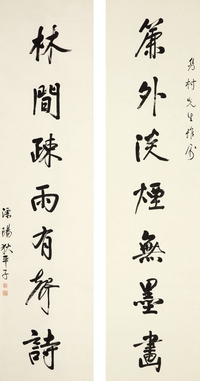 為村先生雅屬
簾外淡煙無墨畫
林間疎雨有聲詩
溧陽狄平子